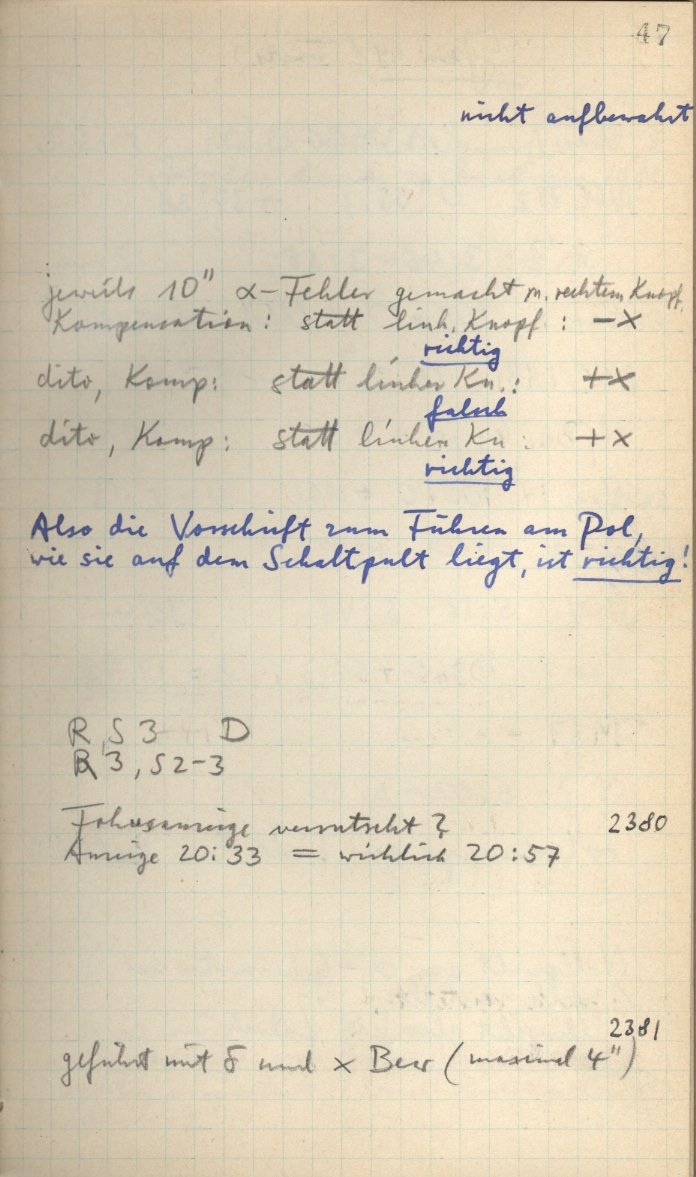 47
nicht aufbewahrt
jeweils 10" α-Fehler gemacht m. rechtem Knopf,
Kompensation: statt link. Knopf: -X
richtig
dito, Komp: statt linker Kn.: +X
falsch
dito, Komp: statt linken Kn: +X
richtig
Also die Vorschrift zum Führen am Pol,
wie sie auf dem Schaltpult liegt, ist richtig!
R, S 3 D
3, S2-3
Fokusanzeige verrutscht? 2380
Anzeige 20:33 = wirklich 20:57
2381
geführt mit δ und x Bew (maximal 4")